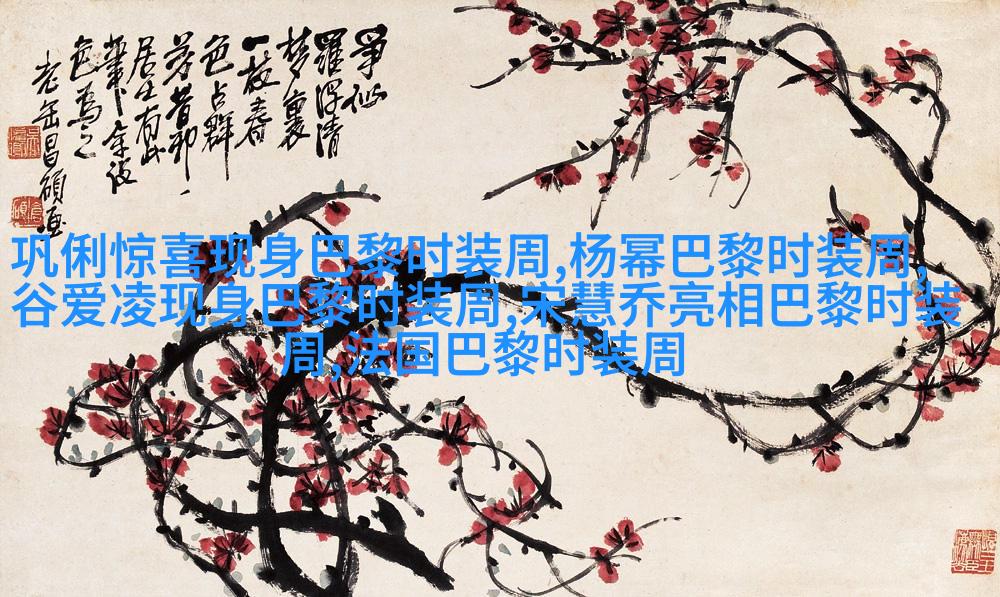 争似
羅浮清
梦裏
一枝春
色占群
芳昔冲
居士有此
筆
色為之
老缶昌碩畫
巩俐惊喜现身巴黎时装周,杨幂巴黎时装周,
谷爱凌现身巴黎时装周,宋慧乔亮相巴黎时装
周,法国巴黎时装周